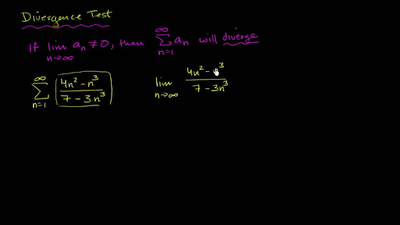 Divergence Test
If lim n→∞ aₙ ≠ 0, then ∑ n=1 ∞ aₙ will diverge
∑ n=1 ∞ (4n² - n³)/(7 - 3n³)
lim n→∞ (4n² - n³)/(7 - 3n³)